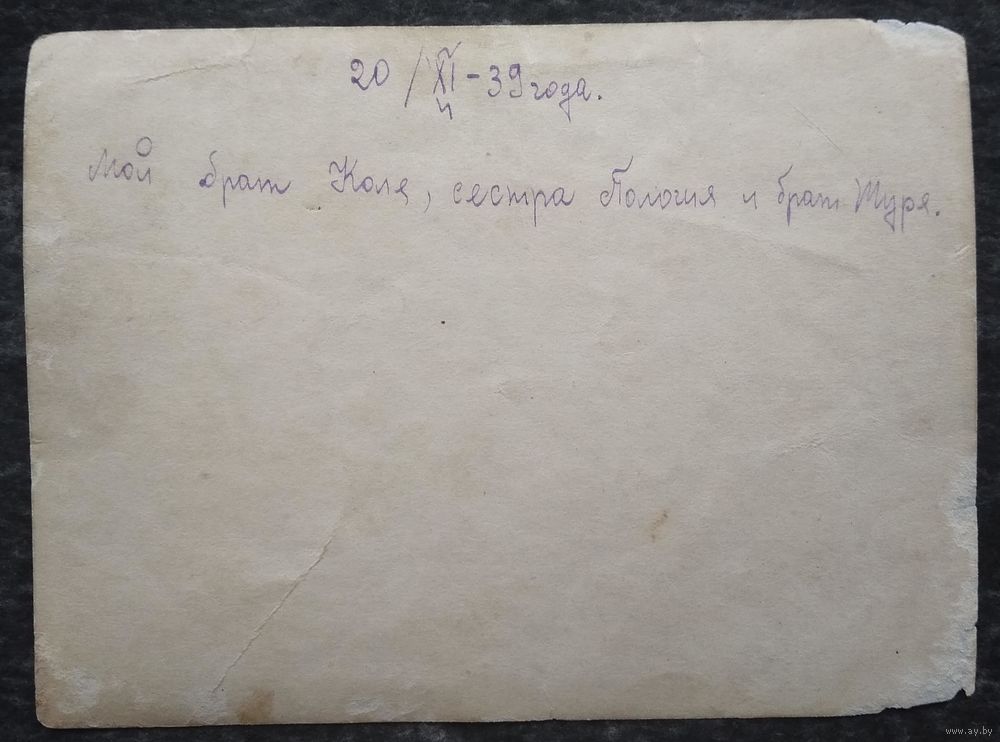 20/XI-39 года.
Мой брат Коля, сестра и брат Шура.
www.ay.by